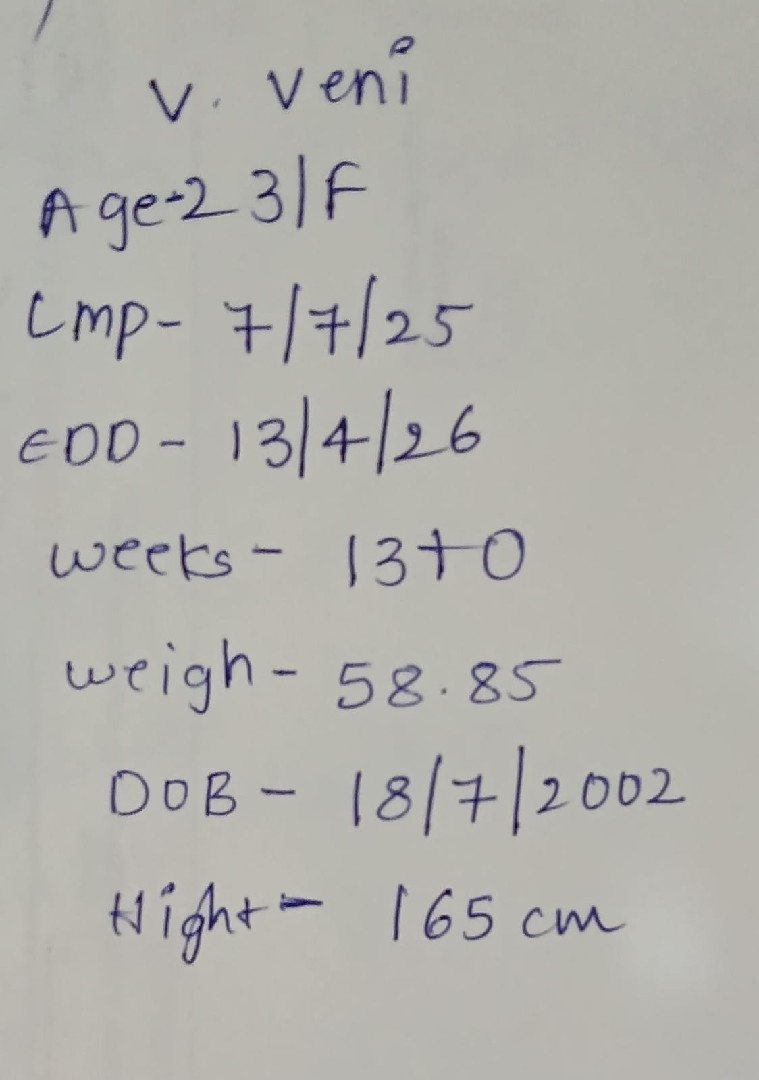 V. Veni
Age-23/F
Lmp- 7/7/25
EDD - 13/4/26
weeks - 13+0
weigh - 58.85
DOB - 18/7/2002
Hight - 165 cm